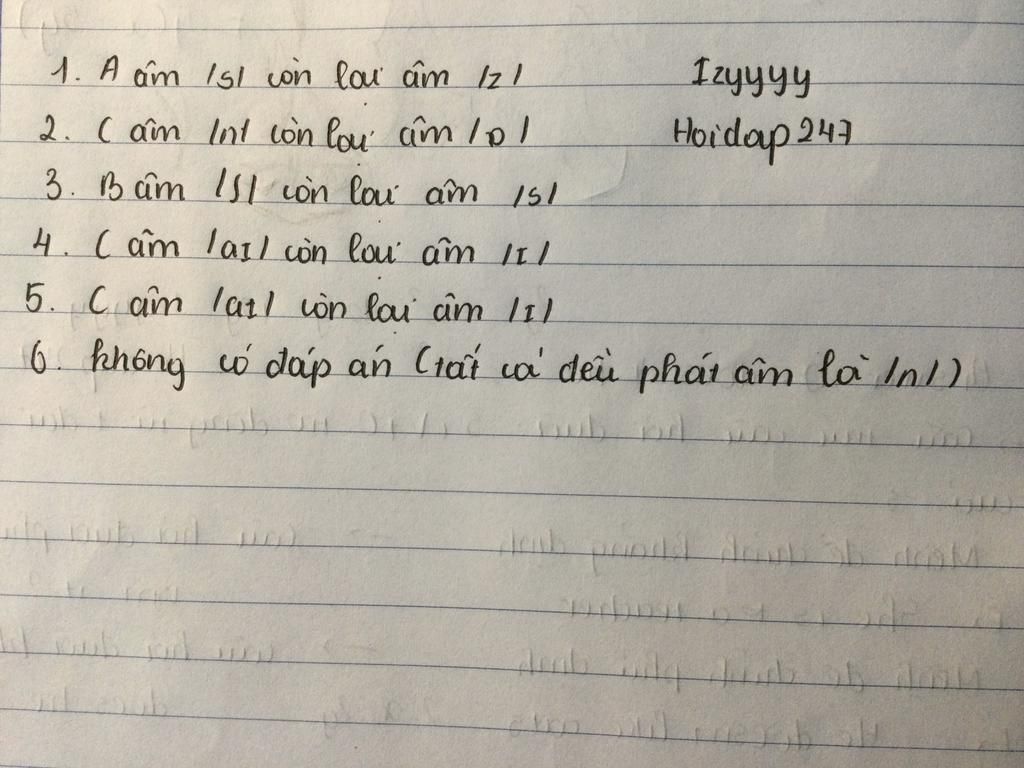 1. A âm /s/ còn lại âm /z/
Izyyyy
2. C âm /n/ còn lại âm /ŋ/
Hoidap247
3. B âm /ʃ/ còn lại âm /s/
4. C âm /aɪ/ còn lại âm /ɪ/
5. C âm /aɪ/ còn lại âm /ɪ/
6. không có đáp án (tất cả đều phát âm là /n/)